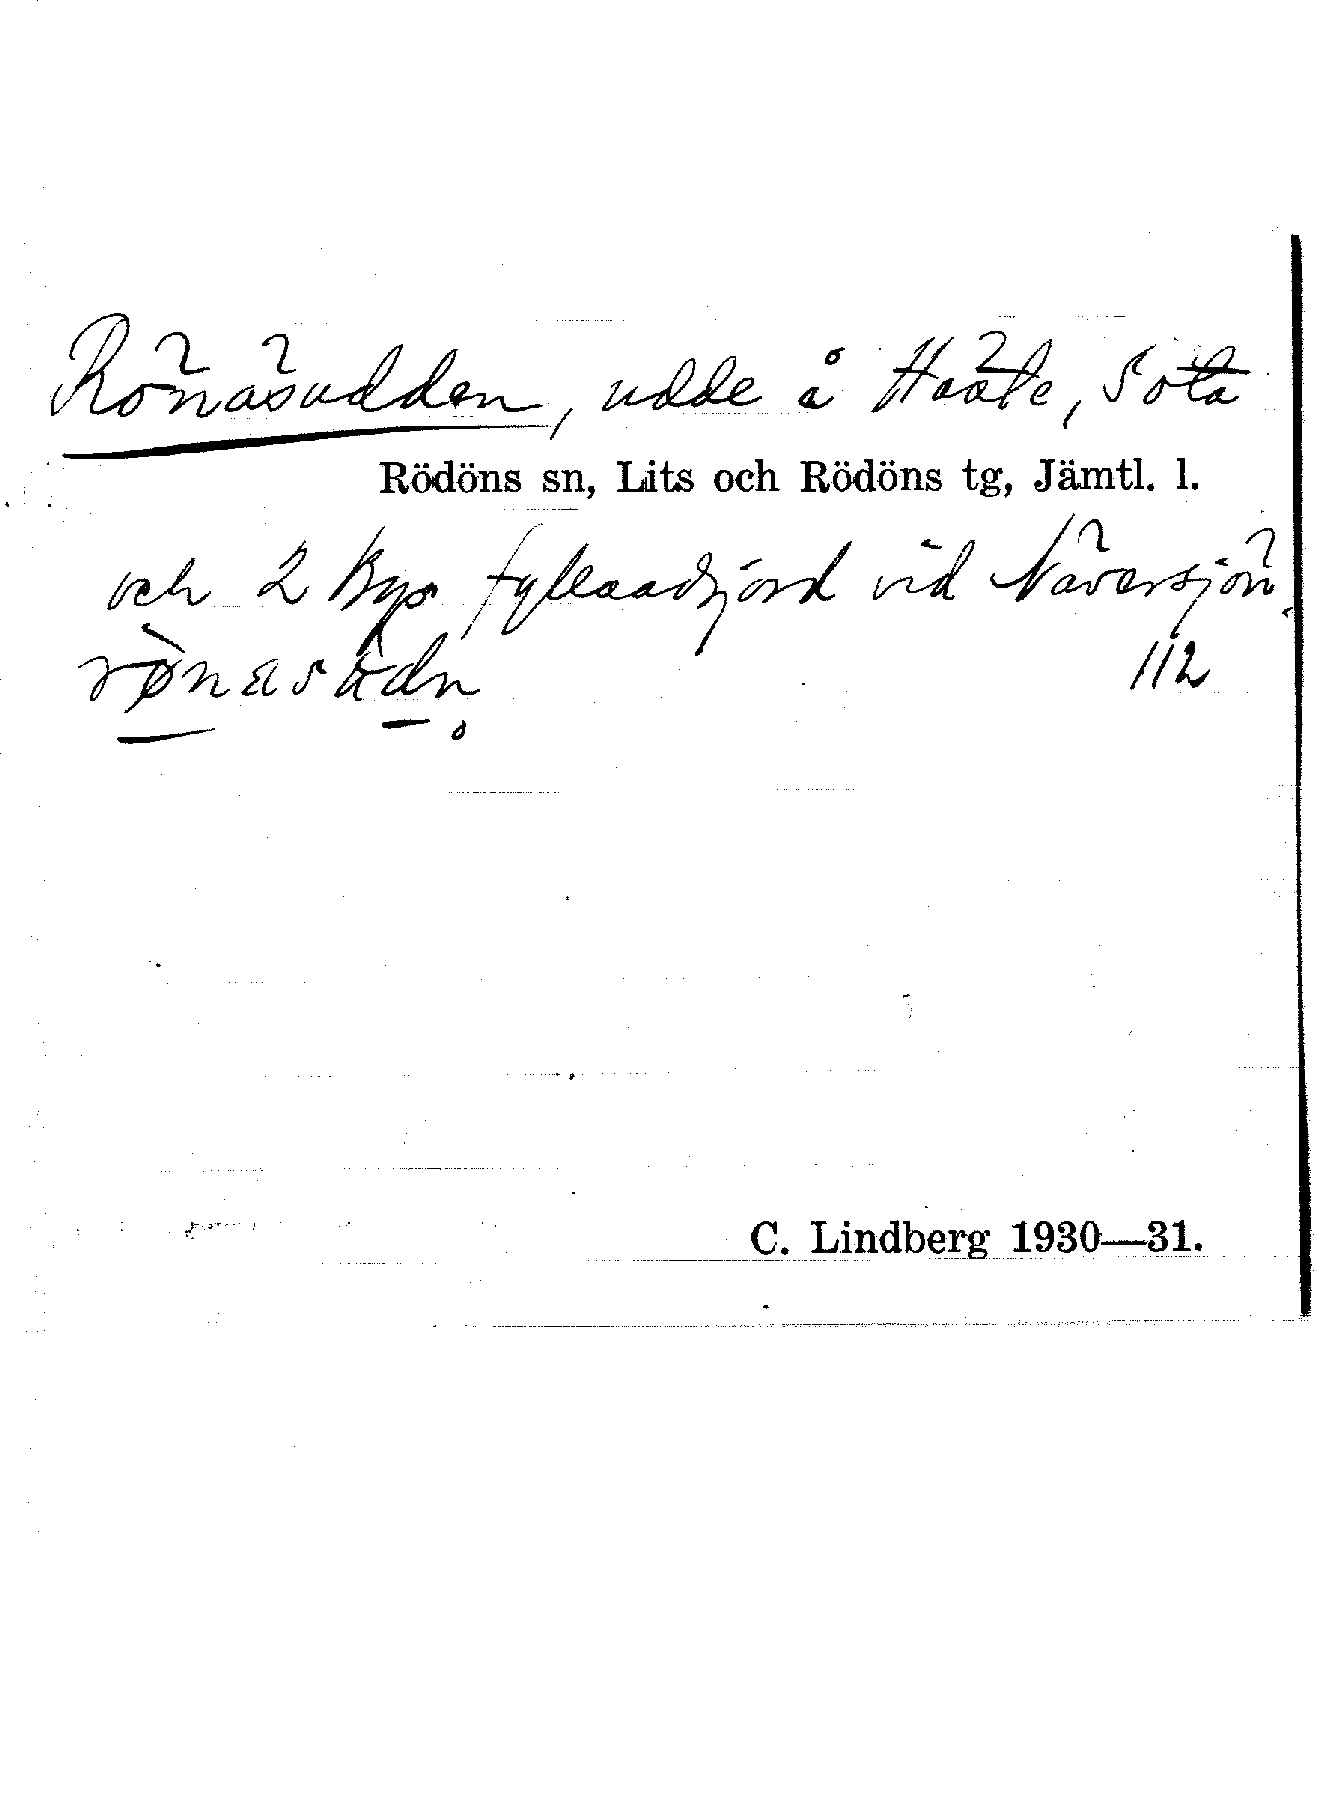 Rönäsudden, udde å Häste, Sota
Rödöns sn, Lits och Rödöns tg, Jämtl. l.
och 2 Bys fyllnadsjord vid Näversjön.
rø̀nasùdn̥
112
C. Lindberg 1930—31.